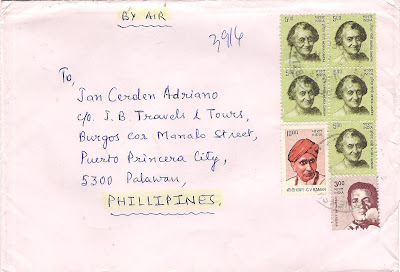 BY AIR
To,
Jan Cerden Adriano
c/o. J.B. Travels & Tours,
Burgos cor Manalo Street,
Puerto Princera City,
5300 Palawan,
PHILLIPINES.
5.00
भारत
INDIA
5.00
भारत
INDIA
5.00
भारत
INDIA
5.00
भारत
INDIA
5.00
भारत
INDIA
10.00
भारत
INDIA
C V RAMAN
3.00
भारत
INDIA